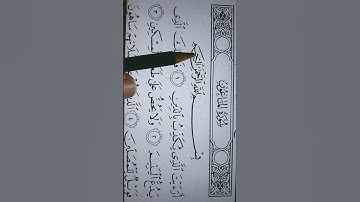 سُورَةُ الْمَاعُونِ
بِسْمِ اللَّهِ الرَّحْمَٰنِ الرَّحِيمِ
أَرَءَيْتَ الَّذِي يُكَذِّبُ بِالدِّينِ ١ الَّذِي
يَدُعُّ الْيَتِيمَ ٢ وَلَا يَحُضُّ عَلَىٰ طَعَامِ الْمِسْكِينِ ٣
فَوَيْلٌ لِّلْمُصَلِّينَ ٤ صَلَاتِهِمْ سَاهُونَ